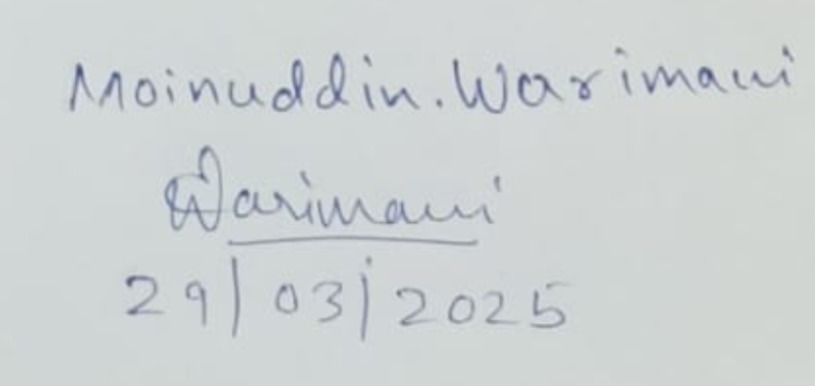 Moinuddin.Warimani
Warimani
29/03/2025